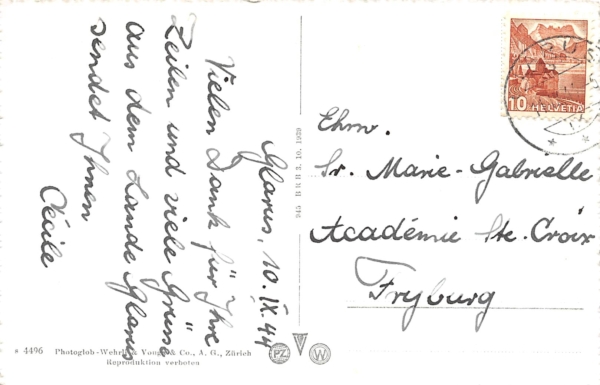 Glarus, 10. IX. 44
Vielen Dank für Ihre
Zeilen und viele Grüsse
aus dem Lande Glarus
sendet Ihnen
Cécile
Ehrw.
Sr. Marie-Gabrielle
Académie Ste. Croix
Fryburg
10 HELVETIA
4496 Photoglob-Wehrli & Vouga & Co., A. G., Zürich
Reproduktion verboten
PZ
W